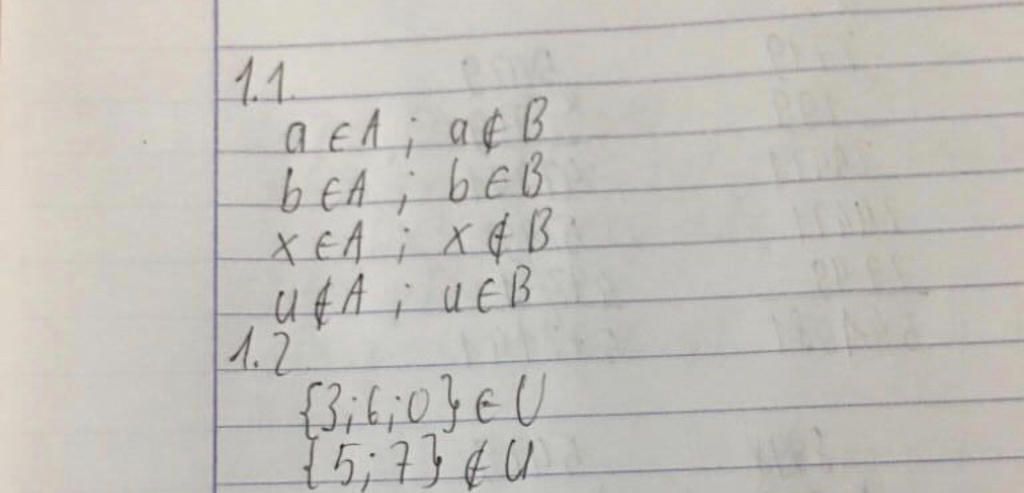 1.1.
a ∈ A ; a ∉ B
b ∈ A ; b ∈ B
x ∈ A ; x ∉ B
u ∉ A ; u ∈ B
1.2
{3;6;0} ∈ U
{5;7} ∉ U